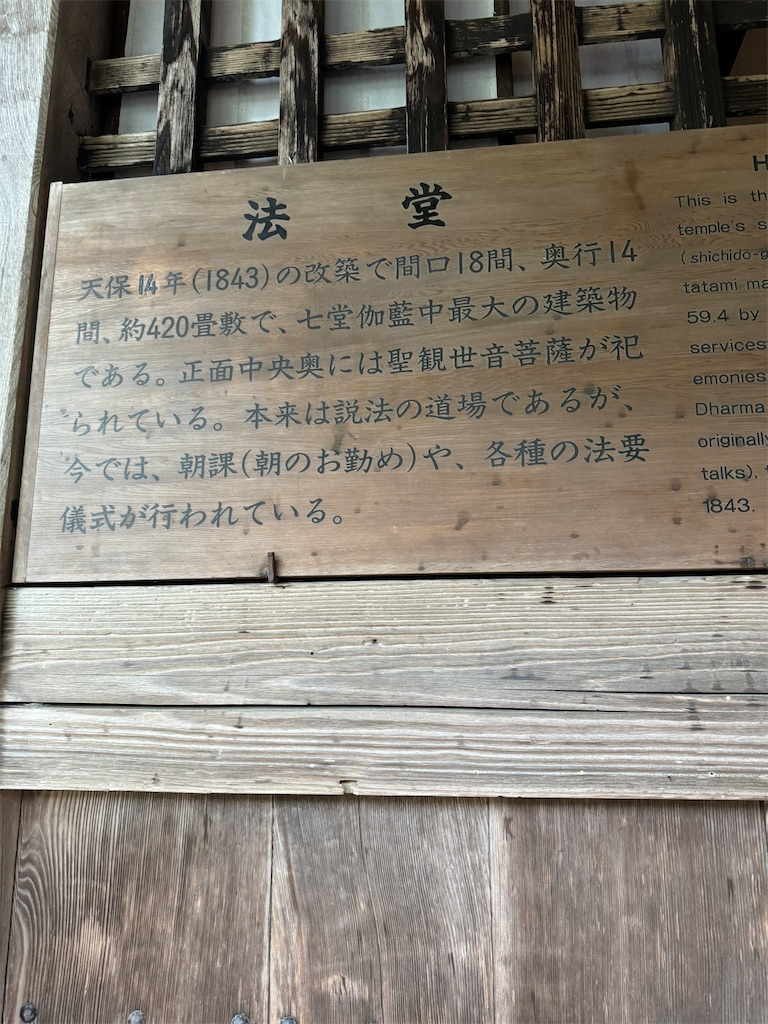 法堂
天保14年(1843)の改築で間口18間、奥行14
間、約420畳敷で、七堂伽藍中最大の建築物
である。正面中央奥には聖観世音菩薩が祀
られている。本来は説法の道場であるが、
今では、朝課(朝のお勤め)や、各種の法要
儀式が行われている。
H
This is th
temple's s
(shichido-g
tatami ma
59.4 by
services
emonies
Dharma
originally
talks).
1843.